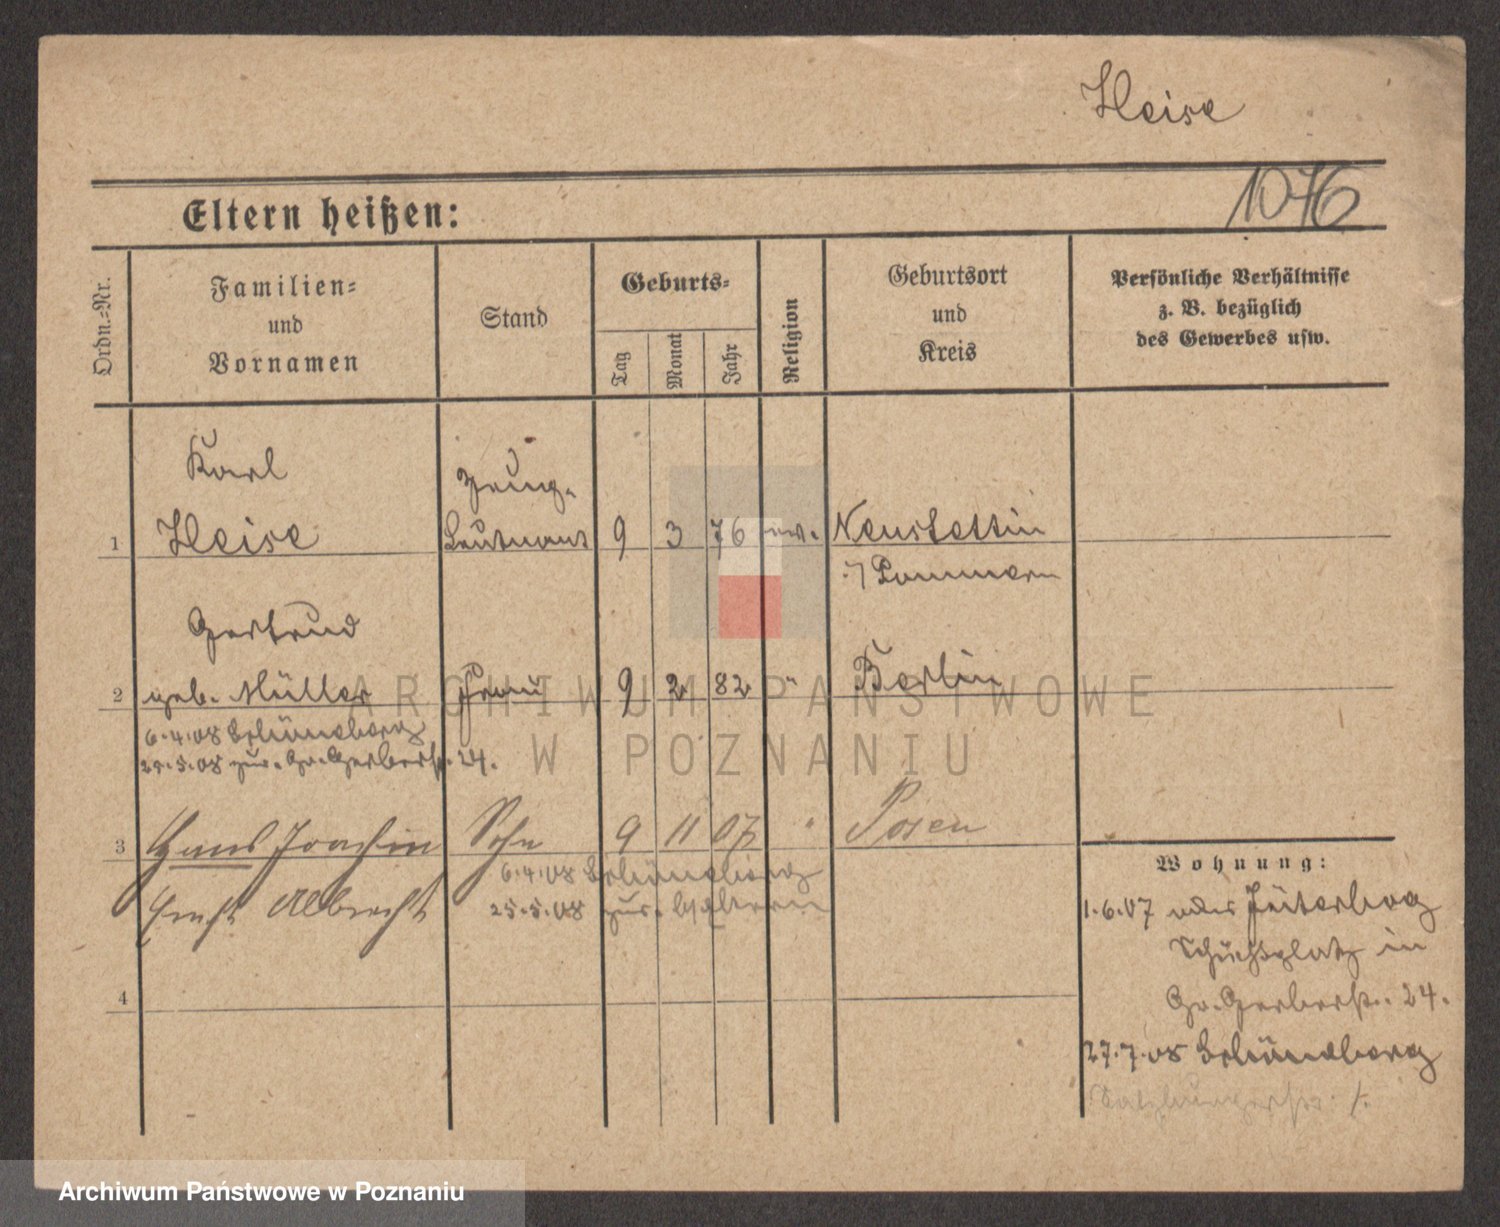 Heise
1076
Eltern heißen:
Ordn.-Nr.
Familien-
und
Vornamen
Stand
Geburts-
Tag
Monat
Jahr
Religion
Geburtsort
und
Kreis
Persönliche Verhältnisse
z. B. bezüglich
des Gewerbes usw.
Karl
Zeug-
1 Heise Leutnant 9 3 76 ev. Neustettin
Pommern
Gertrud
2 geb. Müller Frau 9 2 82 " Berlin
6.4.08 Schöneberg
25.5.08 zur. Gr. Gerberstr. 24.
3 Hans Joachim Sohn 9 11 07 " Posen
6.4.08 Schöneberg
Ernst Albrecht 25.5.08 zur. Eltern
Wohnung:
1.6.07 Jüterbog
Schießplatz in
Gr. Gerberstr. 24.
4
27.7.08 Schöneberg
ARCHIWUM PAŃSTWOWE
W POZNANIU
Archiwum Państwowe w Poznaniu